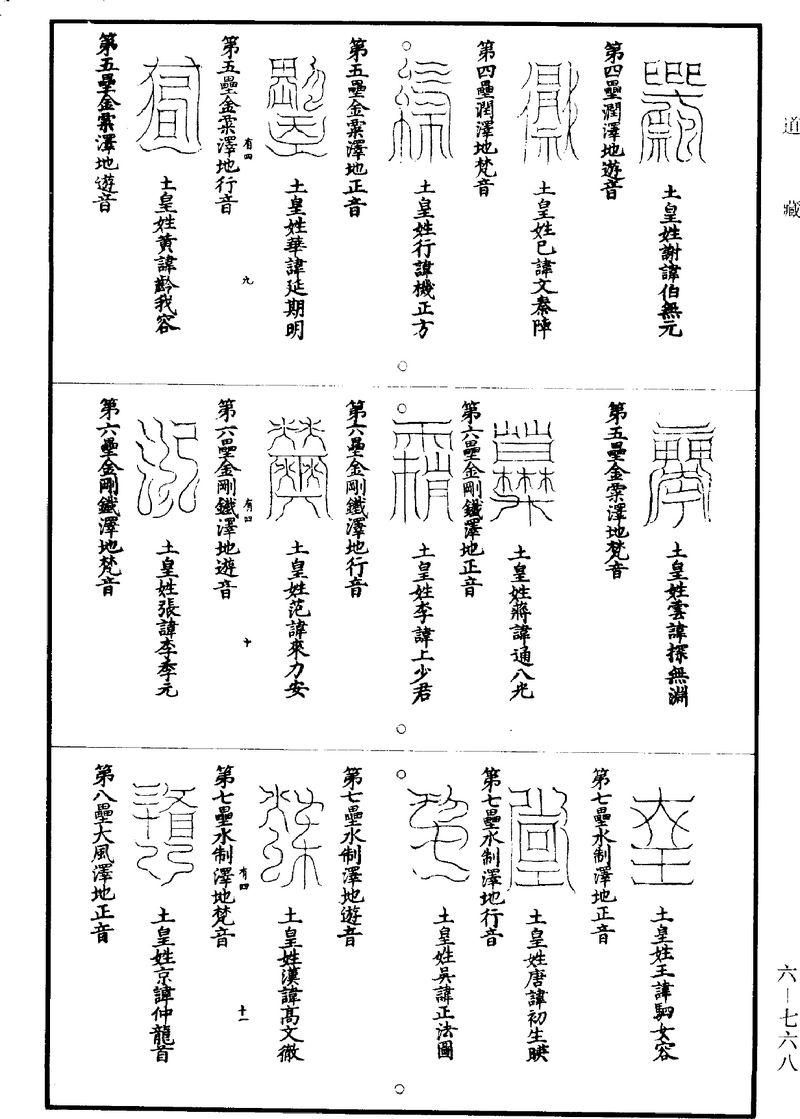 道藏
土皇姓謝諱伯無元
第四壘潤澤地遊音
土皇姓巳諱文秦陣
第四壘潤澤地梵音
土皇姓行諱機正方
第五壘金粟澤地正音
土皇姓華諱延期明
有四
九
第五壘金粟澤地行音
土皇姓黃諱齡我容
第五壘金粟澤地遊音
土皇姓雲諱探無淵
第五壘金粟澤地梵音
土皇姓蔣諱通八光
第六壘金剛鐵澤地正音
土皇姓李諱上少君
第六壘金剛鐵澤地行音
土皇姓范諱來力安
有四
十
第六壘金剛鐵澤地遊音
土皇姓張諱李季元
第六壘金剛鐵澤地梵音
土皇姓王諱駟女容
第七壘水制澤地正音
土皇姓唐諱初生映
第七壘水制澤地行音
土皇姓吳諱正法圖
第七壘水制澤地遊音
土皇姓漢諱高文徹
有四
十一
第七壘水制澤地梵音
土皇姓京諱仲龍首
第八壘大風澤地正音
六—七六八